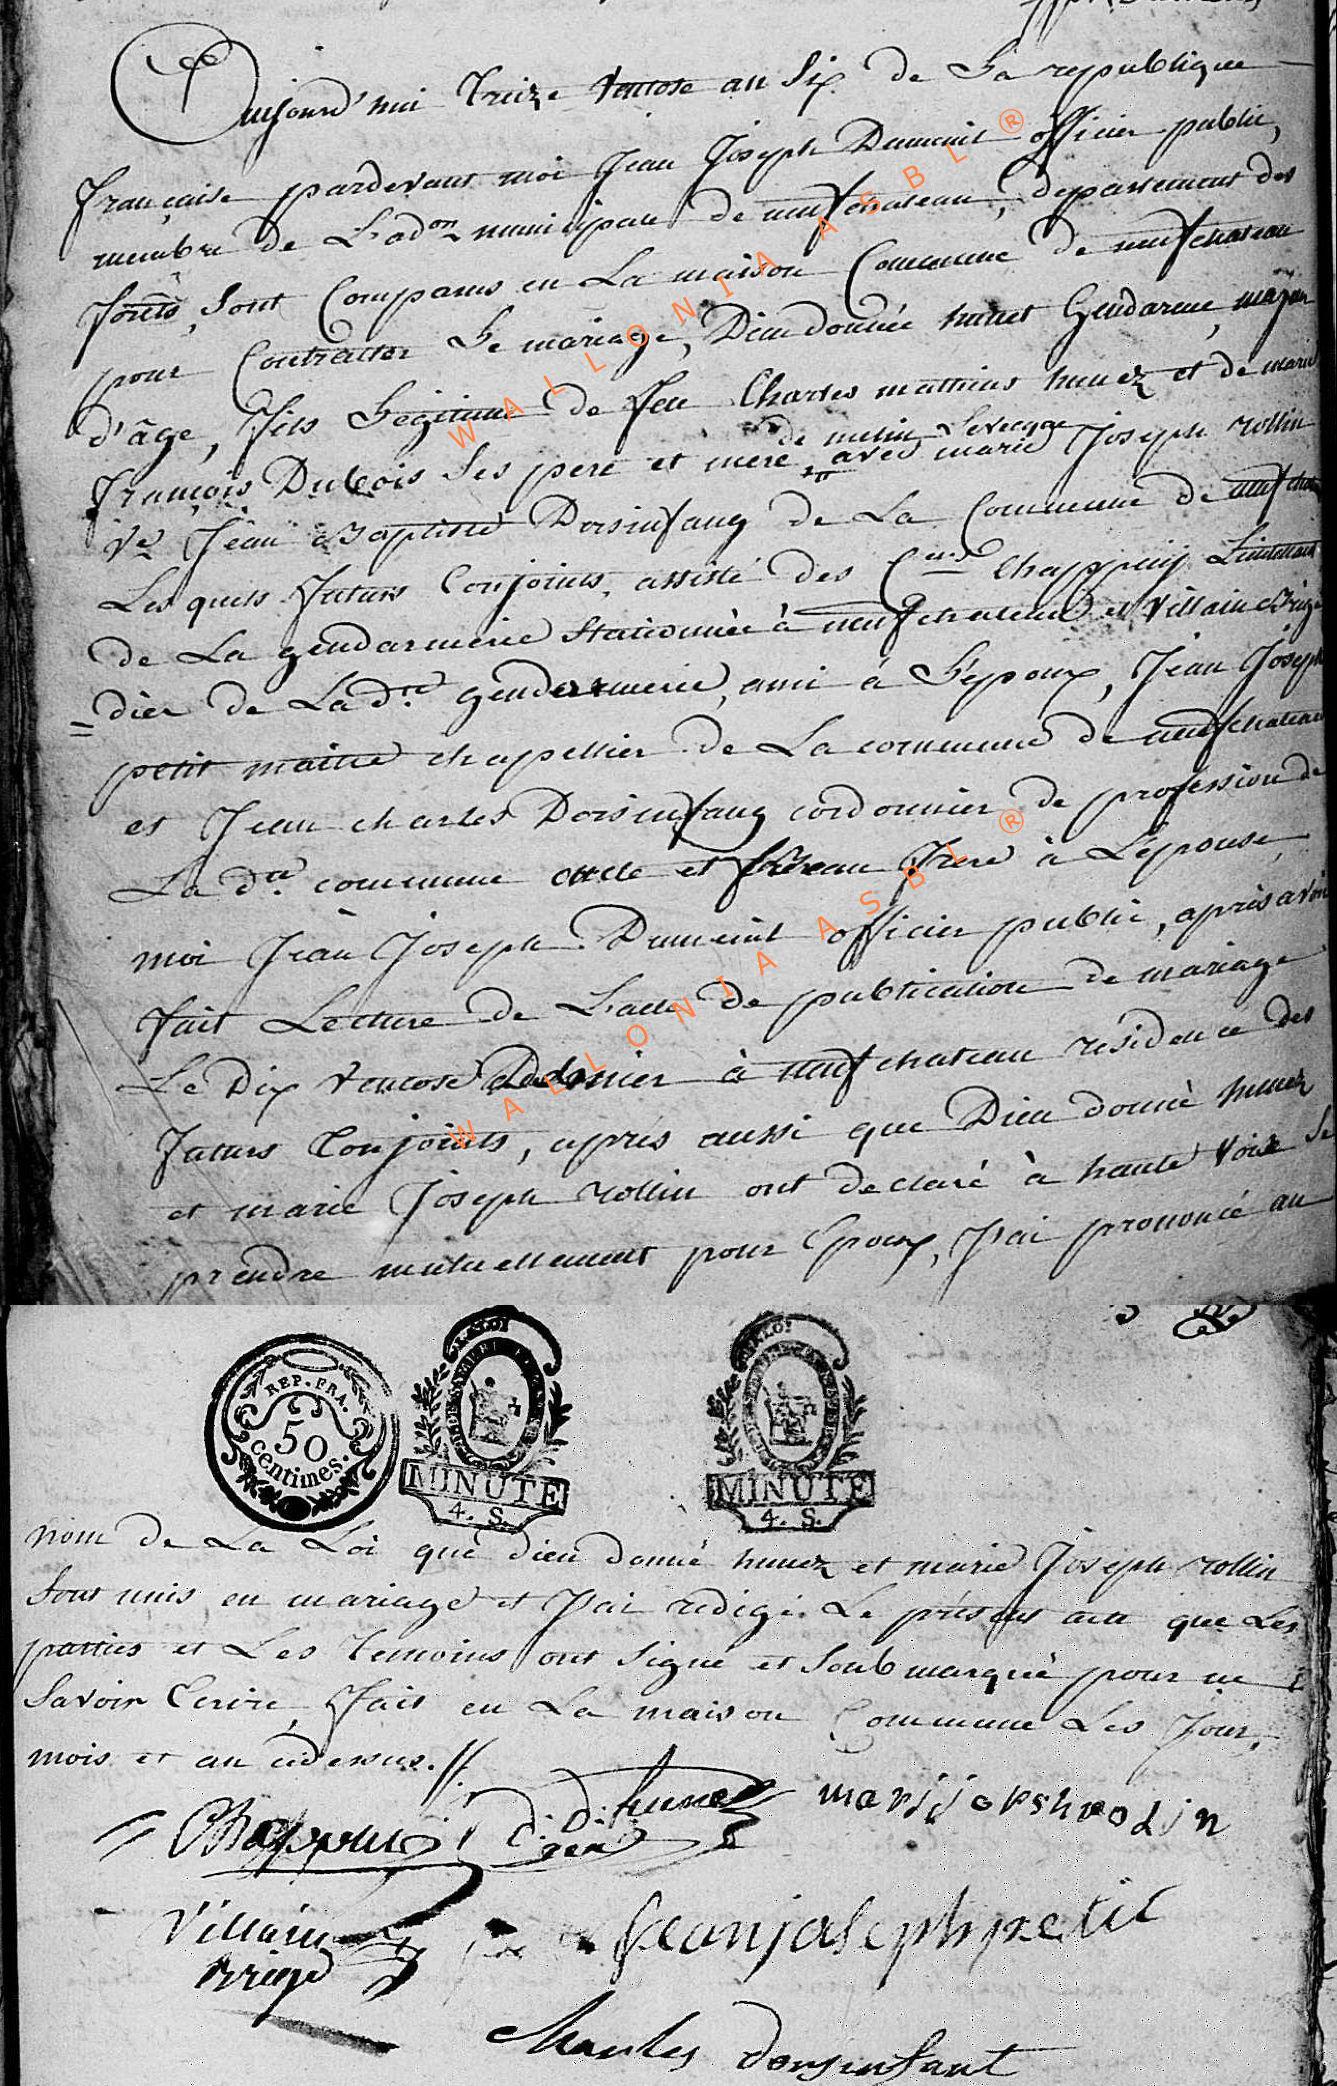 Aujourd'hui treize ventose an six de La republique
française pardevant moi Jean Joseph Dumont officier public,
membre de L'adon municipale de neufchateau, departement des
forêts, sont comparus en La maison Commune de neufchateau
pour Contracter Le mariage, Dieudonnée hunet Gendarme, majeur
d'âge, fils Legitime de feu Charles mathias hunez et de marie
de melin Leveque
françois Dubois ses pere et mere, avec marie Joseph rollin
Ve Jean Baptiste Dorsinfang de La Commune de neufchateau
Lesquels futurs Conjoints, assisté des Cens Chappuij Lieutenant
de La gendarmerie stationnée à neufchateau et Villain Briga
= dier de Ladte gendarmerie, ami à L'epoux, Jean Joseph
petit maitre chapellier de La commune de neufchateau
et Jean charles Dorsinfang cordonnier de profession de
La dte commune oncle et beau frere à L'epouse,
moi Jean Joseph Dumont officier public, après avoir
fait Lecture de L'acte de publication de mariage
Le Dix ventose dernier à neufchateau résidence des
futurs Conjoints, après aussi que Dieu donné hunez
et marie Joseph rollin ont declaré à haute voix se
prendre mutuellement pour Epoux, J'ai prononcé au
WALLONIA ASBL ®
WALLONIA ASBL ®
REP. FRA.
50
centimes.
LA LOI
MINUTE
4. S.
LA LOI
MINUTE
4. S.
nom de La Loi que dieu donné hunez et marie Joseph rollin
sont unis en mariage et J'ai redigé Le présent acte que Les
parties et Les temoins ont signé et soubmarqué pour ne
savoir Ecrire, fait en La maison Commune Les Jour,
mois et an cidessus.
Chappuij
D: D: hunez
gen
marijjosphrolin
Villain
Brige
jeanjosephpetit
Charles dorsinfant